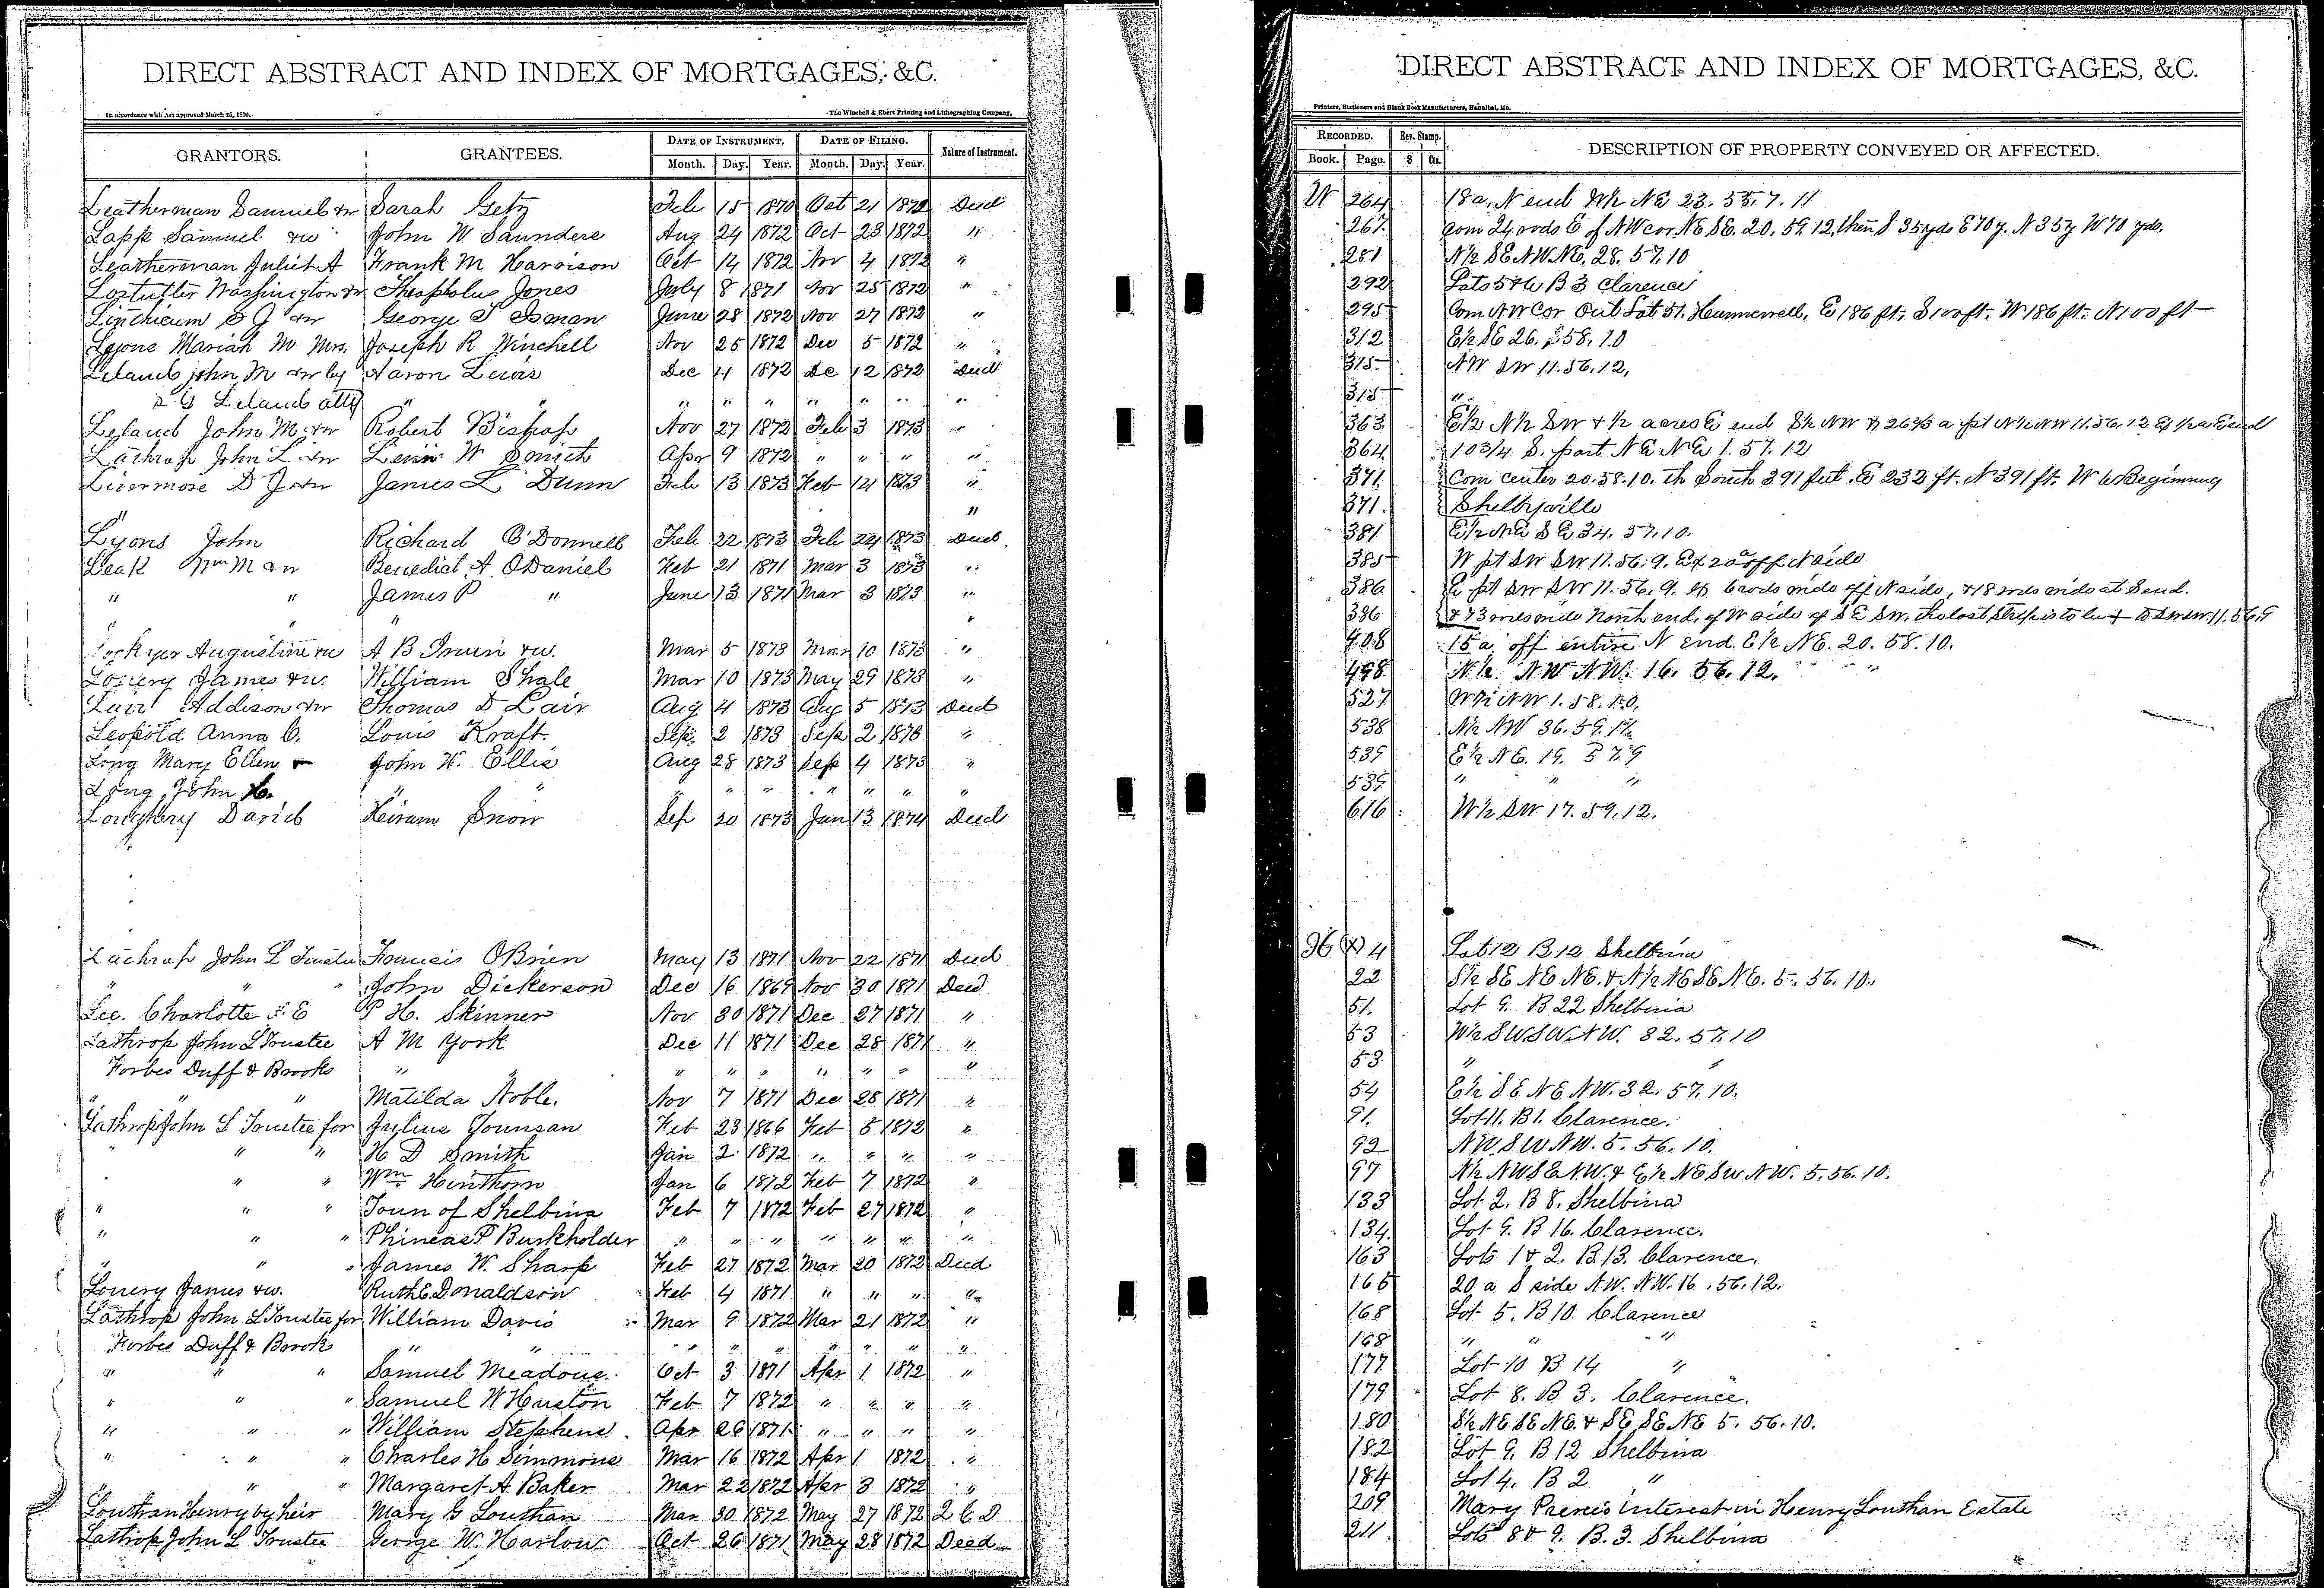 DIRECT ABSTRACT AND INDEX OF MORTGAGES, &C.
In accordance with Act approved March 25, 1870.
The Winchell & Ebert Printing and Lithographing Company,
GRANTORS. GRANTEES. DATE OF INSTRUMENT. DATE OF FILING. Nature of Instrument.
Month. Day. Year. Month. Day. Year.
Leatherman Samuel & w Sarah Getz Feb 15 1870 Oct 21 1872 Deed
Lapp Samuel & w John W Saunders Aug 24 1872 Oct 23 1872 "
Leatherman Juliet A Frank M Harrison Oct 14 1872 Nov 4 1872 "
Lostutter Washington & w Theapholus Jones July 8 1871 Nov 25 1872 "
Linthicum S J & w George T Isman June 28 1872 Nov 27 1872 "
Lyons Mariah M Mrs. Joseph R Winchell Nov 25 1872 Dec 5 1872 "
Leland John M & w by Aaron Lewis Dec 4 1872 De 12 1872 Deed
Leland atty " " " " " " " "
Leland John M & w Robert Bishop Nov 27 1872 Feb 3 1873 "
Lathrop John L & w Levi W Smith Apr 9 1872 " " " "
Livermore D J & w James L Dunn Feb 13 1873 Feb 14 1873 "
" "
Lyons John Richard O'Donnell Feb 22 1873 Feb 24 1873 Deed.
Leak Wm M & w Benedict A. ODaniel Feb 21 1871 Mar 3 1873 "
" " James P " June 13 1871 Mar 3 1873 "
" " "
Augustine & w A B Irwin & w. Mar 5 1873 Mar 10 1873 "
Lowery James & w. William Shale Mar 10 1873 May 29 1873 "
Lair Addison & w Thomas D Lair Aug 4 1873 Aug 5 1873 Deed
Leopold Anna C. Louis Kraft. Sep. 2 1873 Sep 2 1873 "
Long Mary Ellen & John W. Ellis Aug 28 1873 Sep 4 1873 "
Long, John H. " " " " " " " " "
Loughery David Heiram Snow Sep 20 1873 Jan 13 1874 Deed
Lathrop John L Trustee Francis OBrien May 13 1871 Nov 22 1871 Deed
" " " John Dickerson Dec 16 1869 Nov 30 1871 Deed
Lee. Charlotte F. E P H. Skinner Nov 30 1871 Dec 27 1871 "
Lathrop John L Trustee A M York Dec 11 1871 Dec 28 1871 "
Forbes Duff & Brooks " " " " " " " " "
" " Matilda Noble. Nov 7 1871 Dec 28 1871 "
Lathrop John L Trustee for Julius Tounsan Feb 23 1866 Feb 5 1872 "
" " " H D Smith Jan 2 1872 " " " "
" " Wm Hinthorn Jan 6 1872 Feb 7 1872 "
" " " Town of Shelbina Feb 7 1872 Feb 27 1872 "
" " " Phineas P Burkholder " " " " " " "
" " " James W. Sharp Feb 27 1872 Mar 20 1872 Deed
Lowery James & w. Ruth E. Donaldson Feb 4 1871 " " " "
Lathrop John L Trustee for William Davis Mar 9 1872 Mar 21 1872 "
Forbes Duff & Brook " " " " " " " " "
" " " Samuel Meadows. Oct 3 1871 Apr 1 1872 "
" " " Samuel W Huston Feb 7 1872 " " " "
" " " William Stephens. Apr 26 1871 " " " "
" " " Charles H Simmons Mar 16 1872 Apr 1 1872 "
" " " Margaret A Baker Mar 22 1872 Apr 3 1872 "
Louthan Henry by heir Mary G Louthan Mar 30 1872 May 27 1872 Q C D
Lathrop John L Trustee George W. Harlow Oct 26 1871 May 28 1872 Deed
DIRECT ABSTRACT AND INDEX OF MORTGAGES, &C.
Printers, Stationers and Blank Book Manufacturers, Hannibal, Mo.
RECORDED. Rev. Stamp. DESCRIPTION OF PROPERTY CONVEYED OR AFFECTED.
Book. Page. $ Cts.
W 264 18 a, N end W½ NE 23. 55. 7. 11
267. Com 24 rods E of NW cor NE SE. 20. 59. 12, then S 35 yds E 70 y. N 35 y W 70 yds.
281 N½ SE NW NE. 28. 57. 10
292 Lots 5 & 6 B 3 Clarence
295 Com NW Cor Out Lot 51. Hunnewell, E 186 ft, S 100 ft. W 186 ft. N 100 ft
312 E½ SE 26. 58. 10
315 NW SW 11. 56. 12,
315 "
363 E½ N½ SW & ½ acres E end S½ NW & 26⅔ a pt N½ NW 11. 56. 12 Ex ½ a E end
364 10 3/4 S. part NE NE 1. 57. 12
371 Com center 20. 58. 10. th South 391 feet. E 232 ft. N 391 ft. W to Beginning
371. Shelbyville
381 E½ NE SE 34. 57. 10.
385 W pt SW SW 11. 56. 9. Ex 20 a off N side
386 E pt SW SW 11. 56. 9. Ex 6 rods wide off N side, & 18 rods wide at S end.
386 & 73 rods wide North end. of W side of SE SW.
408 15 a off entire N end. E½ NE. 20. 58. 10.
498 N½ NW NW. 16. 56. 12.
527 NW 1. 58. 10.
538 N½ NW 36. 59. 12
539 E½ NE. 19. 57. 9
539 " " "
616 W½ SW 17. 59. 12.
36 (X) 4 Lot 12 B 12 Shelbina
22 S½ SE NE NE. & N½ NE SE NE. 5. 56. 10.
51. Lot 9. B 22 Shelbina
53 W½ SW SW NW. 32. 57. 10
53 " "
54 E½ SE NE NW. 32. 57. 10.
91. Lot 11. B 1. Clarence.
92 NW SW NW. 5. 56. 10.
97 N½ NW SE NW. & E½ NE SW NW. 5. 56. 10.
133 Lot 2. B 8. Shelbina
134. Lot 9. B 16. Clarence.
163 Lots 1 & 2. B 13. Clarence.
165 20 a S side NW. NW. 16. 56. 12.
168 Lot 5. B 10 Clarence
168 " " "
177 Lot 10 B 14 "
179 Lot 8. B 3. Clarence.
180 S½ NE SE NE. & SE SE NE 5. 56. 10.
182 Lot 9. B 12 Shelbina
184 Lot 4. B 2 "
209 Mary interest in Henry Louthan Estate
211. Lots 8 & 9. B. 3. Shelbina